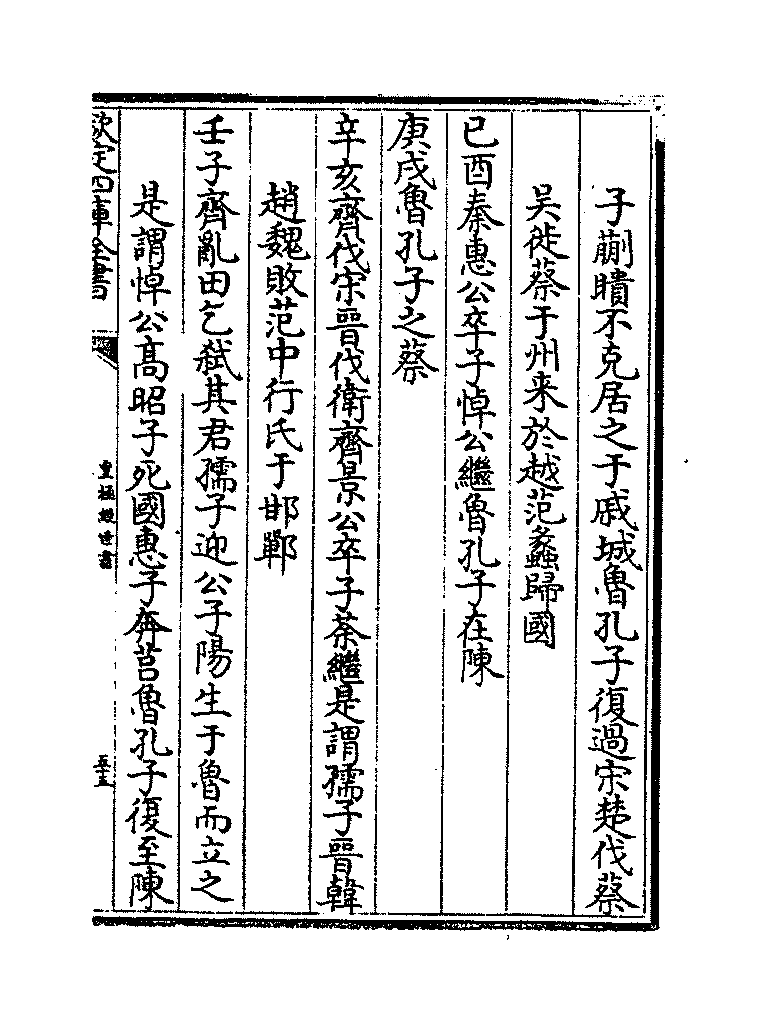 子蒯聵不克居之于戚城魯孔子復過宋楚伐蔡
吴徙蔡于州来於越范蠡歸國
已酉秦惠公卒子悼公繼魯孔子在陳
庚戌魯孔子之蔡
辛亥齊伐宋晉伐衛齊景公卒子荼繼是謂孺子晉韓
趙魏敗范中行氏于邯鄲
壬子齊亂田乞弑其君孺子迎公子陽生于魯而立之
是謂悼公髙昭子死國惠子奔莒魯孔子復至陳
欽定四庫全書
皇極經世書
五十五